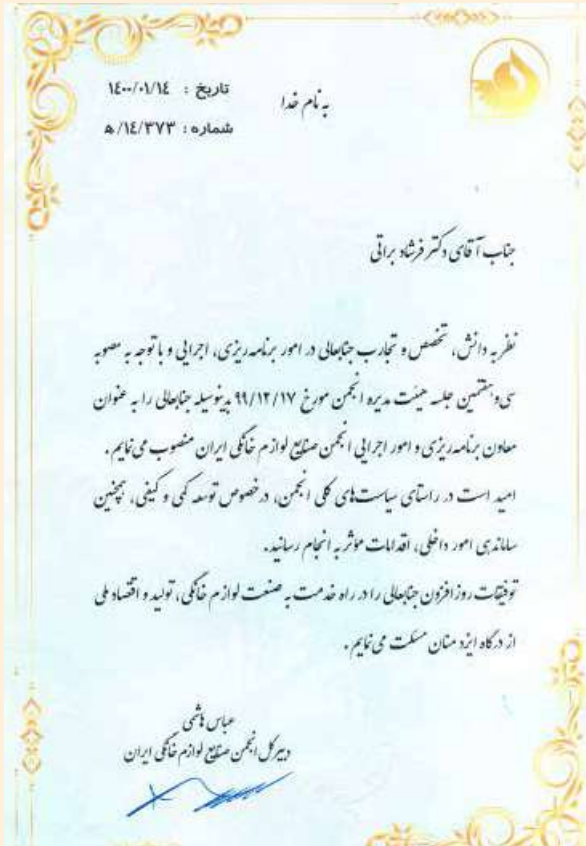 تاریخ : ۱۴۰۰/۰۱/۱۴
به نام خدا
شماره : ۱۴/۳۷۳/ه
جناب آقای دکتر فرشاد براتی
نظر به دانش، تخصص و تجارب جنابعالی در امور برنامه‌ریزی، اجرایی و با توجه به مصوبه
سی و هفتمین جلسه هیئت مدیره انجمن مورخ ۹۹/۱۲/۱۷ بدینوسیله جنابعالی را به عنوان
معاون برنامه‌ریزی و امور اجرایی انجمن صنایع لوازم خانگی ایران منصوب می‌نمایم.
امید است در راستای سیاست‌های کلی انجمن، در خصوص توسعه کمی و کیفی، همچنین
ساماندهی امور داخلی، اقدامات موثر به انجام رسانید.
توفیقات روز افزون جنابعالی را در راه خدمت به صنعت لوازم خانگی، تولید و اقتصاد ملی
از درگاه ایزد منان مسئلت می‌نمایم.
عباس هاشمی
دبیرکل انجمن صنایع لوازم خانگی ایران